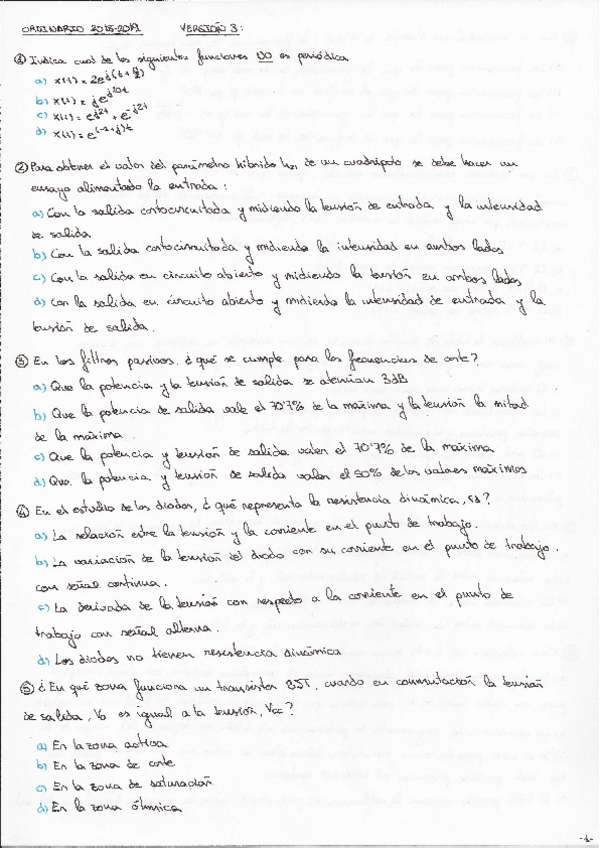 ORDINARIO 2018-2019 VERSIÓN 3:
① Indica cual de las siguientes funciones NO es periódica
a) x(t) = 2e^j(t + π/4)
b) x(t) = je^j10t
c) x(t) = e^j2t + e^-j2t
d) x(t) = e^(-2+j)t
② Para obtener el valor del parámetro híbrido de un cuadripolo se debe hacer un
ensayo alimentando la entrada:
a) Con la salida cortocircuitada y midiendo la tensión de entrada y la intensidad
de salida
b) Con la salida cortocircuitada y midiendo la intensidad en ambos lados
c) Con la salida en circuito abierto y midiendo la tensión en ambos lados
d) Con la salida en circuito abierto y midiendo la intensidad de entrada y la
tensión de salida.
③ En los filtros pasivos, ¿qué se cumple para las frecuencias de corte?
a) Que la potencia y la tensión de salida se atenúan 3dB
b) Que la potencia de salida vale el 70'7% de la máxima y la tensión la mitad
de la máxima
c) Que la potencia y tensión de salida valen el 70'7% de la máxima
d) Que la potencia y tensión de salida valen el 50% de los valores máximos
④ En el estudio de los diodos, ¿qué representa la resistencia dinámica, rd?
a) La relación entre la tensión y la corriente en el punto de trabajo.
b) La variación de la tensión del diodo con su corriente en el punto de trabajo.
con señal continua.
c) La derivada de la tensión con respecto a la corriente en el punto de
trabajo con señal alterna.
d) Los diodos no tienen resistencia dinámica
⑤ ¿En qué zona funciona un transistor BJT, cuando en conmutación la tensión
de salida, Vo es igual a la tensión, Vcc?
a) En la zona activa
b) En la zona de corte
c) En la zona de saturación
d) En la zona óhmica
-1-